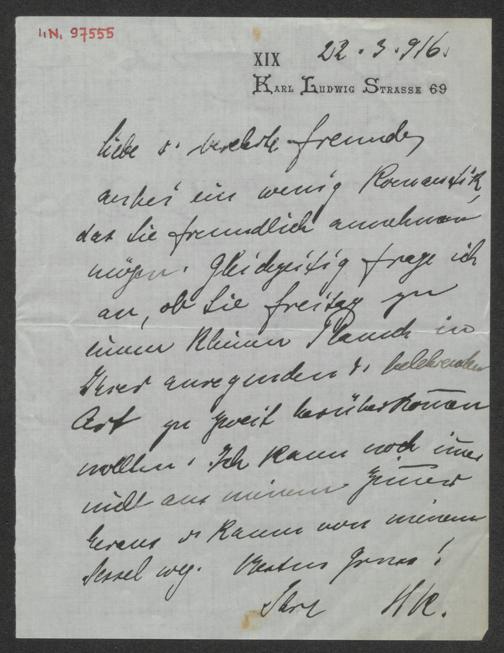 I.N. 97555
22.3.916.
XIX
Karl Ludwig Strasse 69
Liebe u. verehrte Freunde,
anbei ein wenig Romantik,
das Sie freundlich annehmen
mögen. Gleichzeitig frage ich
an, ob Sie Freitag zu
einem kleinen Plausch in
Ihrer anregenden u. belehrenden
Art zu zweit herüberkommen
wollten. Ich kann noch immer
nicht aus meinem Zimmer
heraus u kaum von meinem
Sessel weg. Besten Gruss!
Ihre